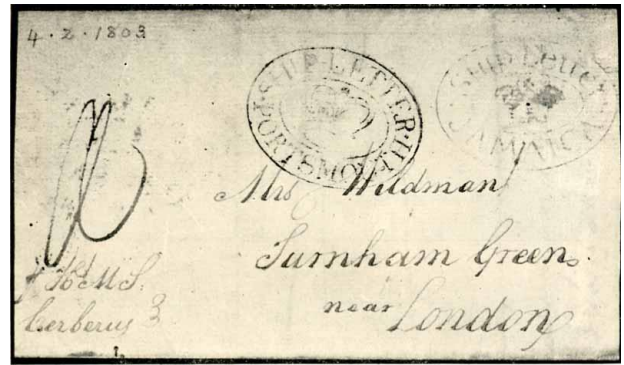 4.2.1803
SHIP-LETTER
PORTSMOUTH
Ship Letter
JAMAICA
Mrs Wildman
Turnham Green
near London
H.M.S.
Cerberus